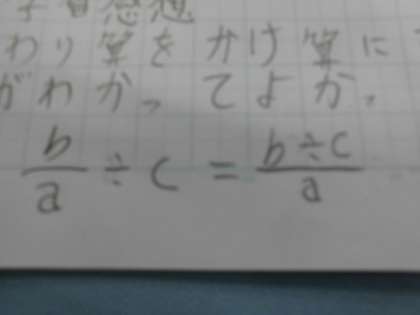 学習感想
わり算をかけ算に
がわかってよか
b/a ÷ c = b÷c/a